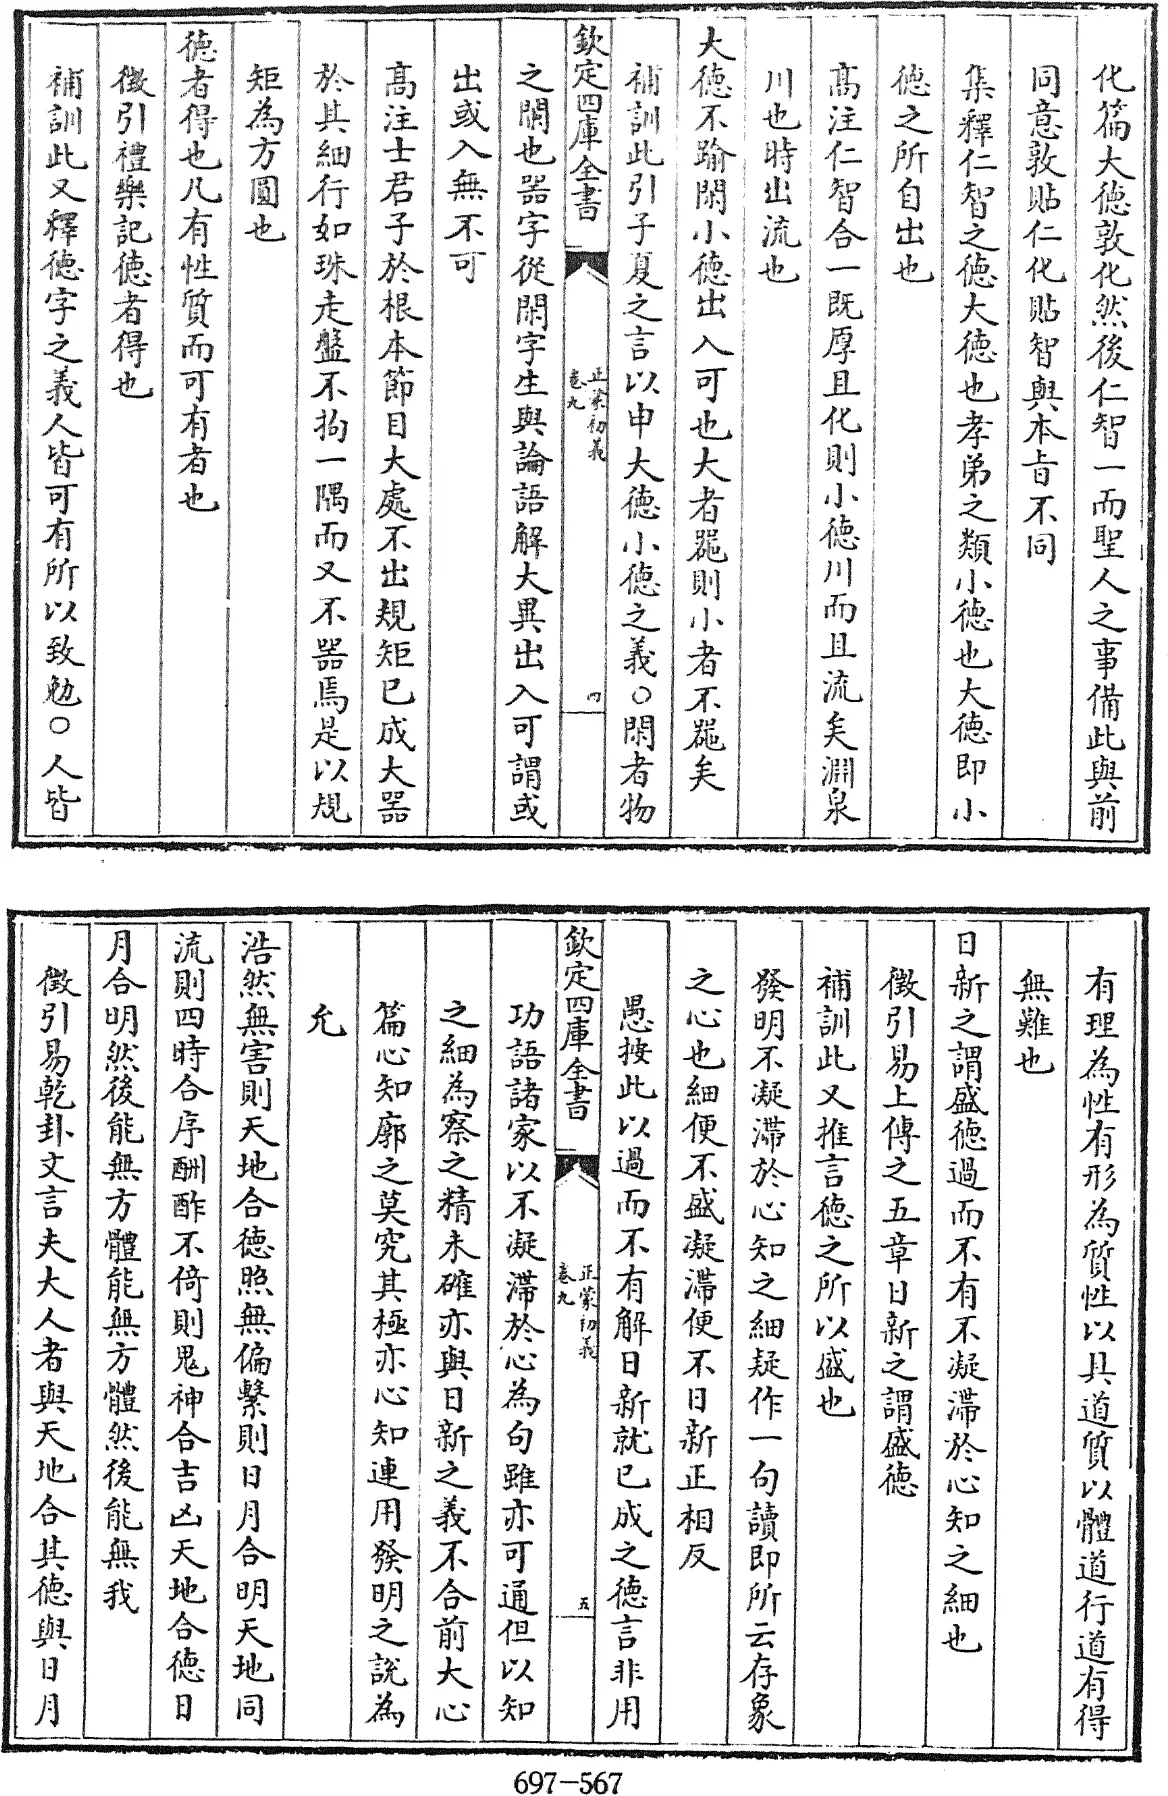 化篇大徳敦化然後仁智一而聖人之事備此與前
同意敦貼仁化貼智與本㫖不同
集釋仁智之徳大徳也孝弟之類小徳也大徳即小
徳之所自出也
髙注仁智合一既厚且化則小徳川而且流矣淵泉
川也時出流也
大徳不踰閑小徳出入可也大者器則小者不器矣
補訓此引子夏之言以申大徳小徳之義○閑者物
欽定四庫全書
正蒙初義
卷九
四
之閑也器字從閑字生與論語解大異出入可謂或
出或入無不可
髙注士君子於根本節目大處不出規矩已成大器
於其細行如珠走盤不拘一隅而又不器焉是以規
矩為方圓也
徳者得也凡有性質而可有者也
徵引禮樂記徳者得也
補訓此又釋徳字之義人皆可有所以致勉○人皆
有理為性有形為質性以具道質以體道行道有得
無難也
日新之謂盛徳過而不有不凝滯於心知之細也
徵引易上傳之五章日新之謂盛徳
補訓此又推言徳之所以盛也
發明不凝滯於心知之細疑作一句讀即所云存象
之心也細便不盛凝滯便不日新正相反
愚按此以過而不有解日新就已成之徳言非用
欽定四庫全書
正蒙初義
卷九
五
功語諸家以不凝滯於心為句雖亦可通但以知
之細為察之精未確亦與日新之義不合前大心
篇心知廓之莫究其極亦心知連用發明之說為
允
浩然無害則天地合徳照無偏繫則日月合明天地同
流則四時合序酬酢不倚則鬼神合吉凶天地合徳日
月合明然後能無方體能無方體然後能無我
徵引易乾卦文言夫大人者與天地合其徳與日月
697-567